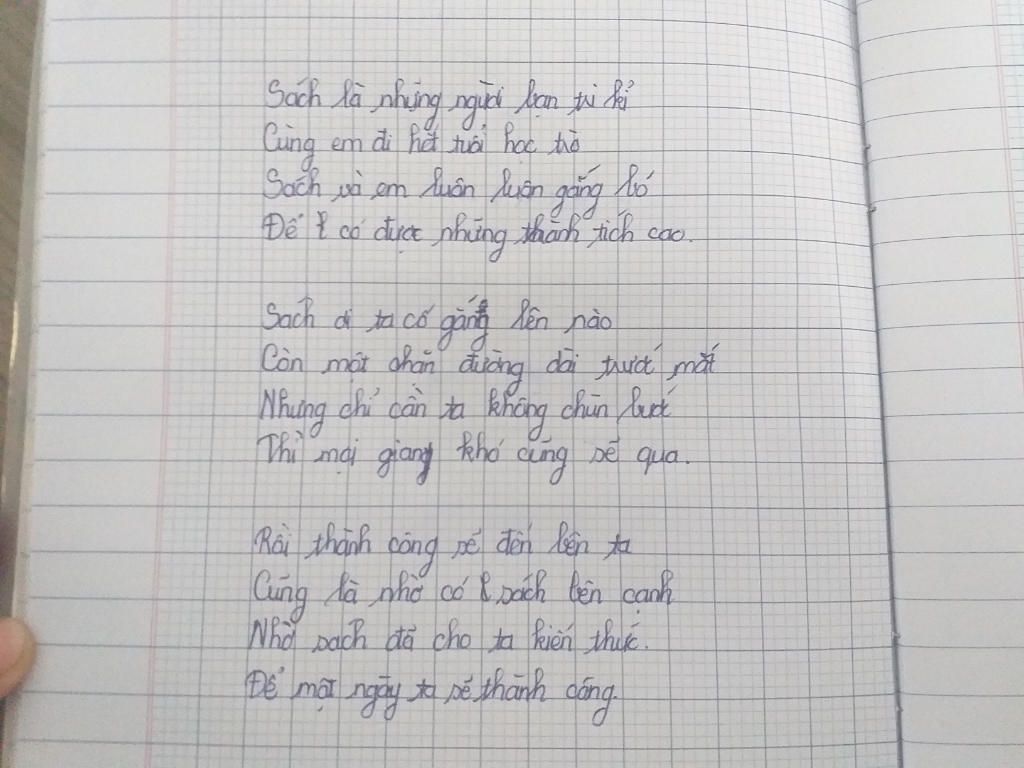 Sách là những người bạn tri kỉ
Cùng em đi hết tuổi học trò
Sách và em luôn luôn gắng bó
Để có được những thành tích cao.
Sách ơi ta cố gắng lên nào
Còn một chặn đường dài trước mắt
Nhưng chỉ cần ta không chùn bước
Thì mọi giang khó cũng sẽ qua.
Rồi thành công sẽ đến bên ta
Cũng là nhờ có sách bên cạnh
Nhờ sách đã cho ta kiến thức.
Để một ngày ta sẽ thành công.